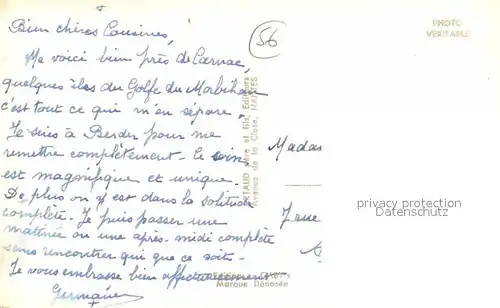 Bien chères Cousines,
Me voici bien près de Carnac,
quelques îles du Golfe du Morbihan
c'est tout ce qui m'en sépare.
Je suis à Berder pour me
remettre complètement. Le
est magnifique et unique.
De plus on y est dans la solitude
complète. Je puis passer une
matinée ou une après-midi complète
sans rencontrer qui que ce soit.
Je vous embrasse bien affectueusement
Germaine
56
PHOTO
VERITABLE
ARTAUD père et fils, Editeurs
Avenue de la Close, NANTES
Madam
7 rue
privacy protection
Datenschutz
Editions
Marque Déposée